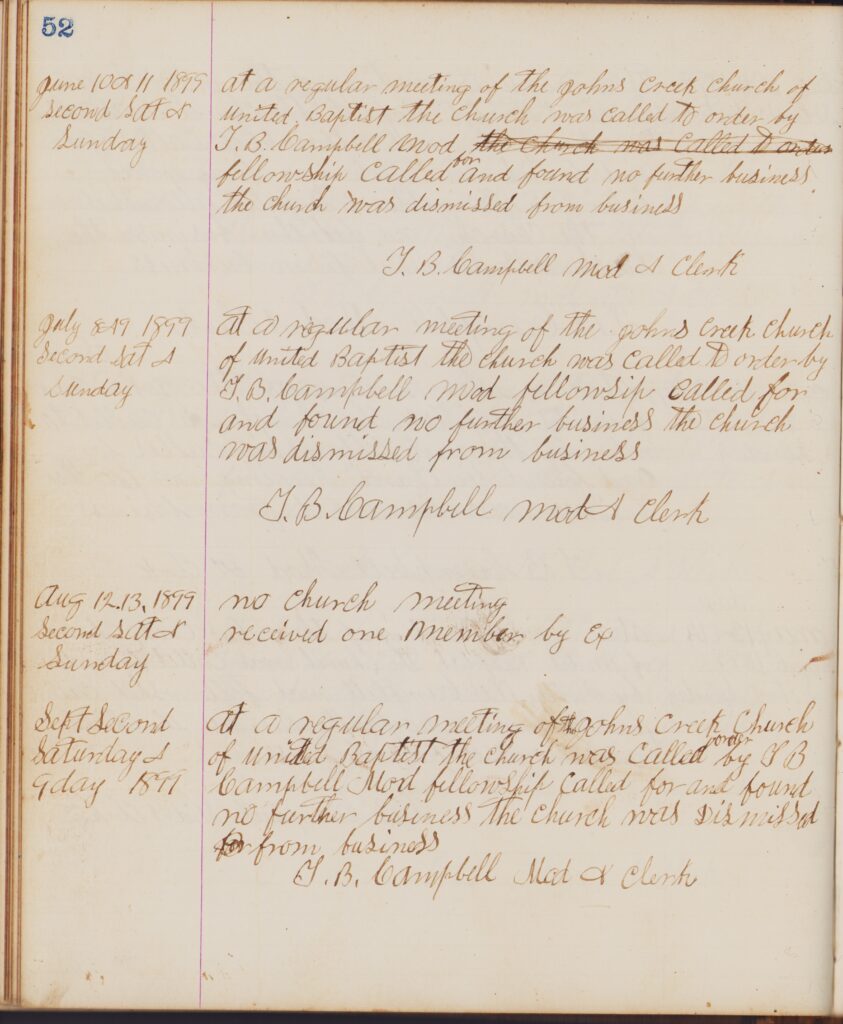 52
june 10 & 11 1899
second Sat &
Sunday
at a regular meeting of the johns creek church of
united Baptist the church was called to order by
T. B. Campbell Mod the church was called to order
fellowship called for and found no further business
the church was dismissed from business
T. B. Campbell Mod & Clerk
july 8 & 9 1899
second Sat &
Sunday
at a regular meeting of the johns creek church
of united Baptist the church was called to order by
T. B. Campbell Mod fellowship called for
and found no further business the church
was dismissed from business
T. B. Campbell Mod & Clerk
Aug 12.13. 1899
second Sat &
Sunday
no church meeting
received one member by Ex
Sept second
Saturday &
9 day 1899
at a regular meeting of the johns creek church
of united Baptist the church was called to order by T B
Campbell Mod fellowship called for and found
no further business the church was Dismissed
for from business
T. B. Campbell Mod & Clerk